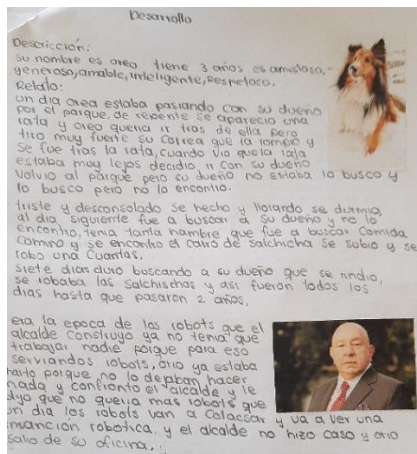 Desarrollo
Descricción:
su nombre es oreo tiene 3 años es amistoso,
generoso, amable, inteligente, Respetoso.
Relato:
un dia orea estaba pasiando con su dueño
por el parque, de repente se aparecio una
rata y oreo queria ir tras de ella pero
tiro muy fuerte su correa que la rompio y
se fue tras la rata, cuando vio que la rata
estaba muy lejos decidio ir con su dueño
volvio al parque pero su dueño no estaba lo busco y
lo busco pero no lo encontro.
triste y desconsolado se hecho y llorando se durmio,
al dia siguiente fue a buscar a su dueño y no lo
encontro, tenia tanta hambre que fue a buscar comida
camino y se encontro el carro de salchicha se subio y se
robo una cuantas.
siete dias duro buscando a su dueño que se rindio,
se robaba las salchischas y asi fueron todos los
dias hasta que pasaron 2 años.
era la epoca de los robots que el
alcalde construyo ya no tenia que
trabajar nadie porque para eso
serviandos robots, orio ya estaba
harto porque no lo dejaban hacer
nada y confronto el alcalde y le
dijo que no queria mas robots que
un dia los robots van a colacsar y va a ver una
invanción robotica. y el alcalde no hizo caso y orio
salio de su oficina.